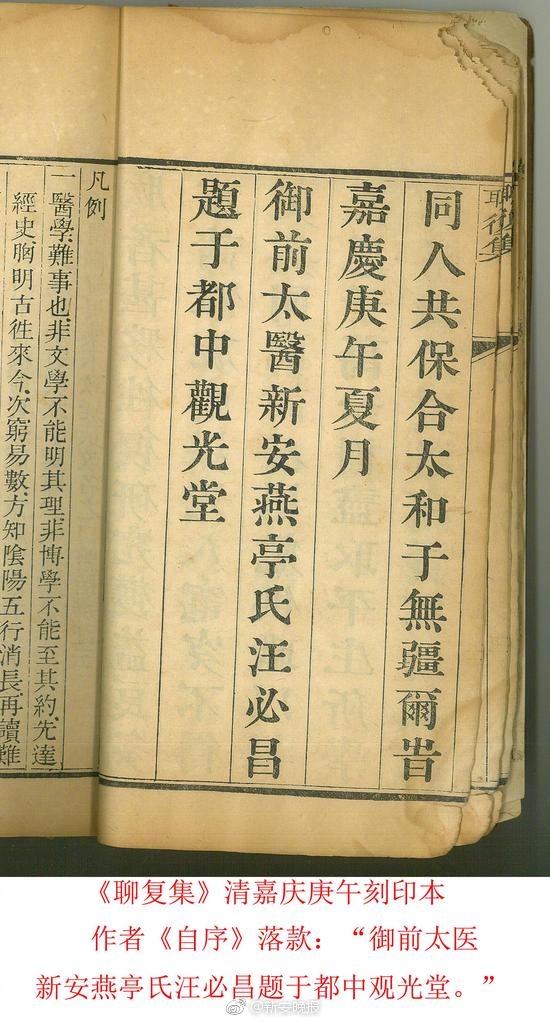 聊復集
同人共保合太和于無疆爾旹
嘉慶庚午夏月
御前太醫新安燕亭氏汪必昌
題于都中觀光堂
凡例
一醫學難事也非文學不能明其理非博學不能至其約先達
經史胸明古徃來今次窮易數方知陰陽五行消長再讀難
《聊复集》清嘉庆庚午刻印本
作者《自序》落款：“御前太医
新安燕亭氏汪必昌题于都中观光堂。”
@新安晚报